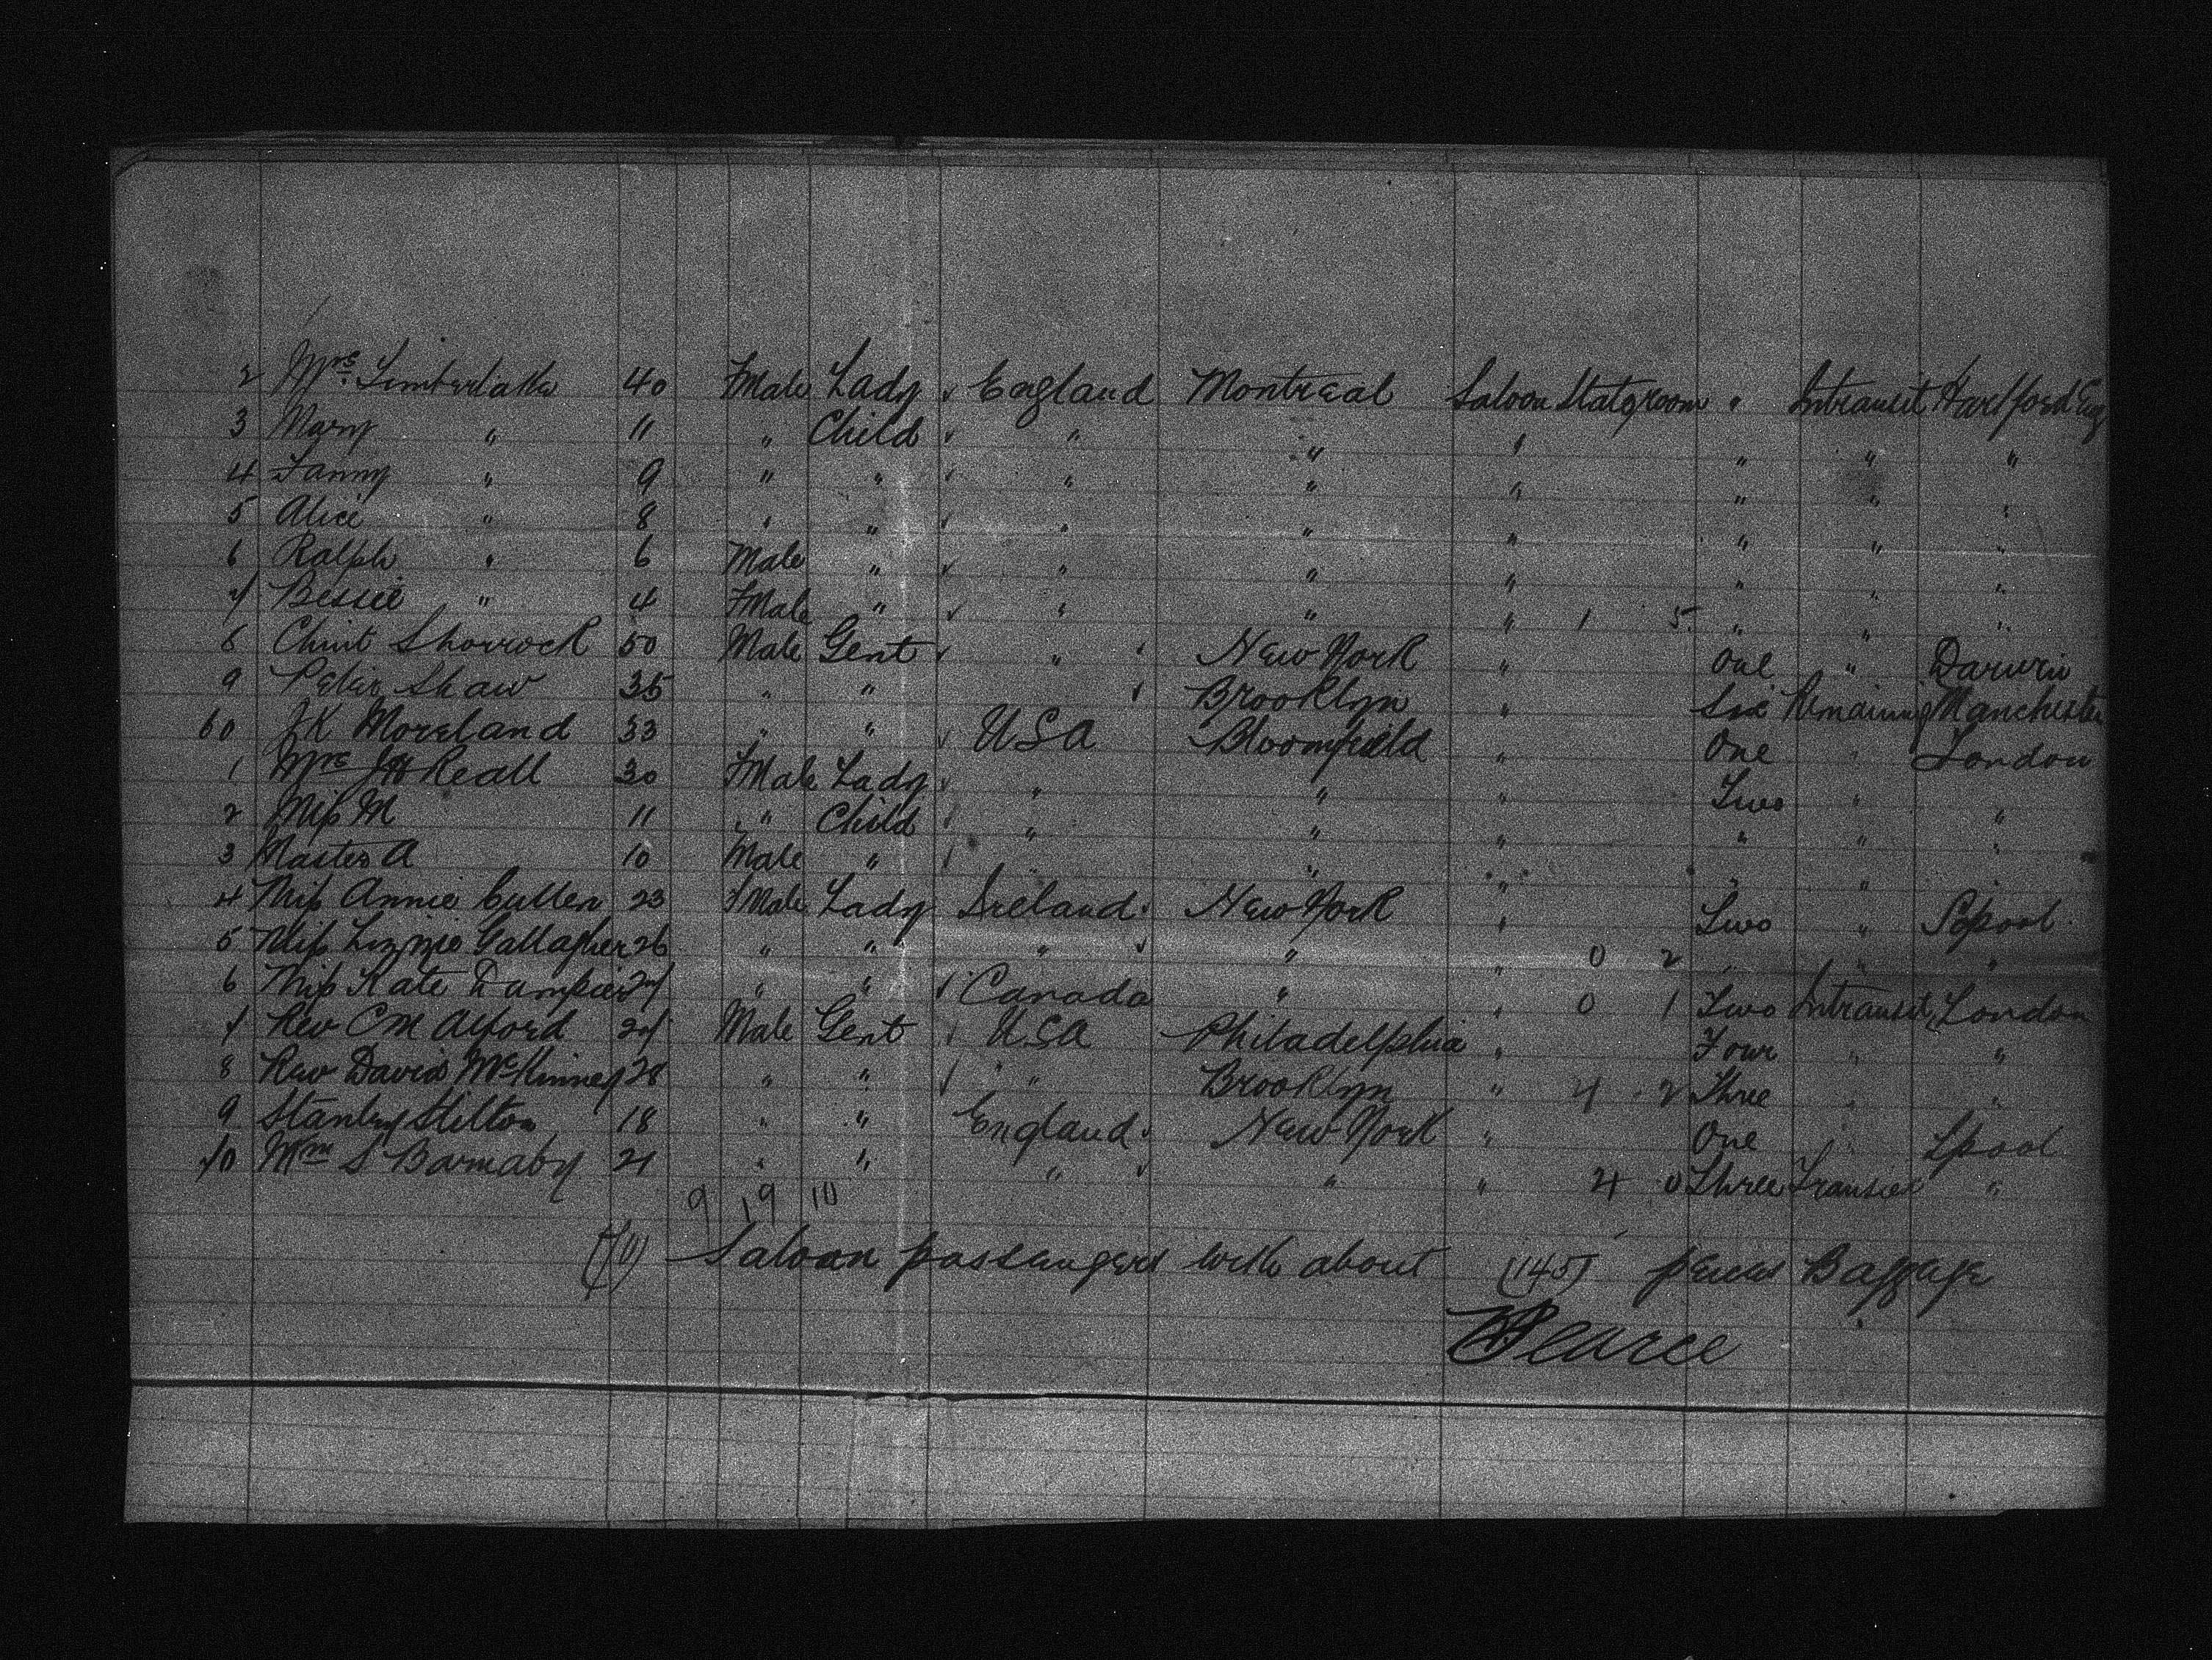 2 Mrs. Timberlake 40 FMale Lady England Montreal Saloon Stateroom " Intransit Hartford Eng
3 Mary " 11 " Child " " " " " "
4 Fanny " 9 " " " " " " " "
5 Alice " 8 " " " " " " " "
6 Ralph " 6 Male " " " " " " "
7 Bessie " 4 FMale " " " " 1 5 " " "
8 Shorrock 50 Male Gent " New York " One " Darwin
9 Peter Shaw 35 " " Brooklyn " Six Remaining Manchester
60 J K Moreland 33 " " USA Bloomfield " One " London
1 Mrs J H Reall 30 FMale Lady " " " Two " "
2 Miss M 11 " Child " " " " " "
3 Master A 10 Male " " " " " "
4 Miss Annie Cullen 23 FMale Lady Ireland New York " Two " Lpool
5 Miss Lizzie Gallagher 26 " " " " " 0 2 " " "
6 Miss Kate Dampier 27 " " Canada " " 0 1 Two Intransit London
7 Rev C M Alford 27 Male Gent USA Philadelphia " Four " "
8 Rev David McKinney 28 " " " Brooklyn " 4 2 Three " "
9 Stanley Stilton 18 " " England New York " One " Lpool
70 Wm S Barnaby 21 " " " " " 4 0 Three Transit "
9 19 10
(70) Saloon passengers with about (145) pieces Baggage
Pearce